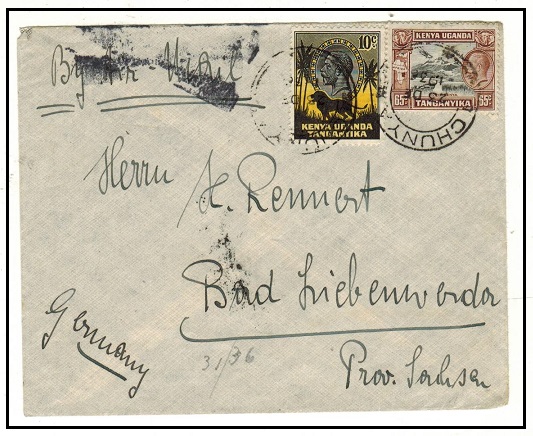 By Air-Mail
10c
KENYA UGANDA
TANGANYIKA
KENYA UGANDA
65c 65c
TANGANYIKA
CHUNYA
Herrn H. Rennert
Bad Liebenwerda
Prov. Sachsen
Germany
31/36